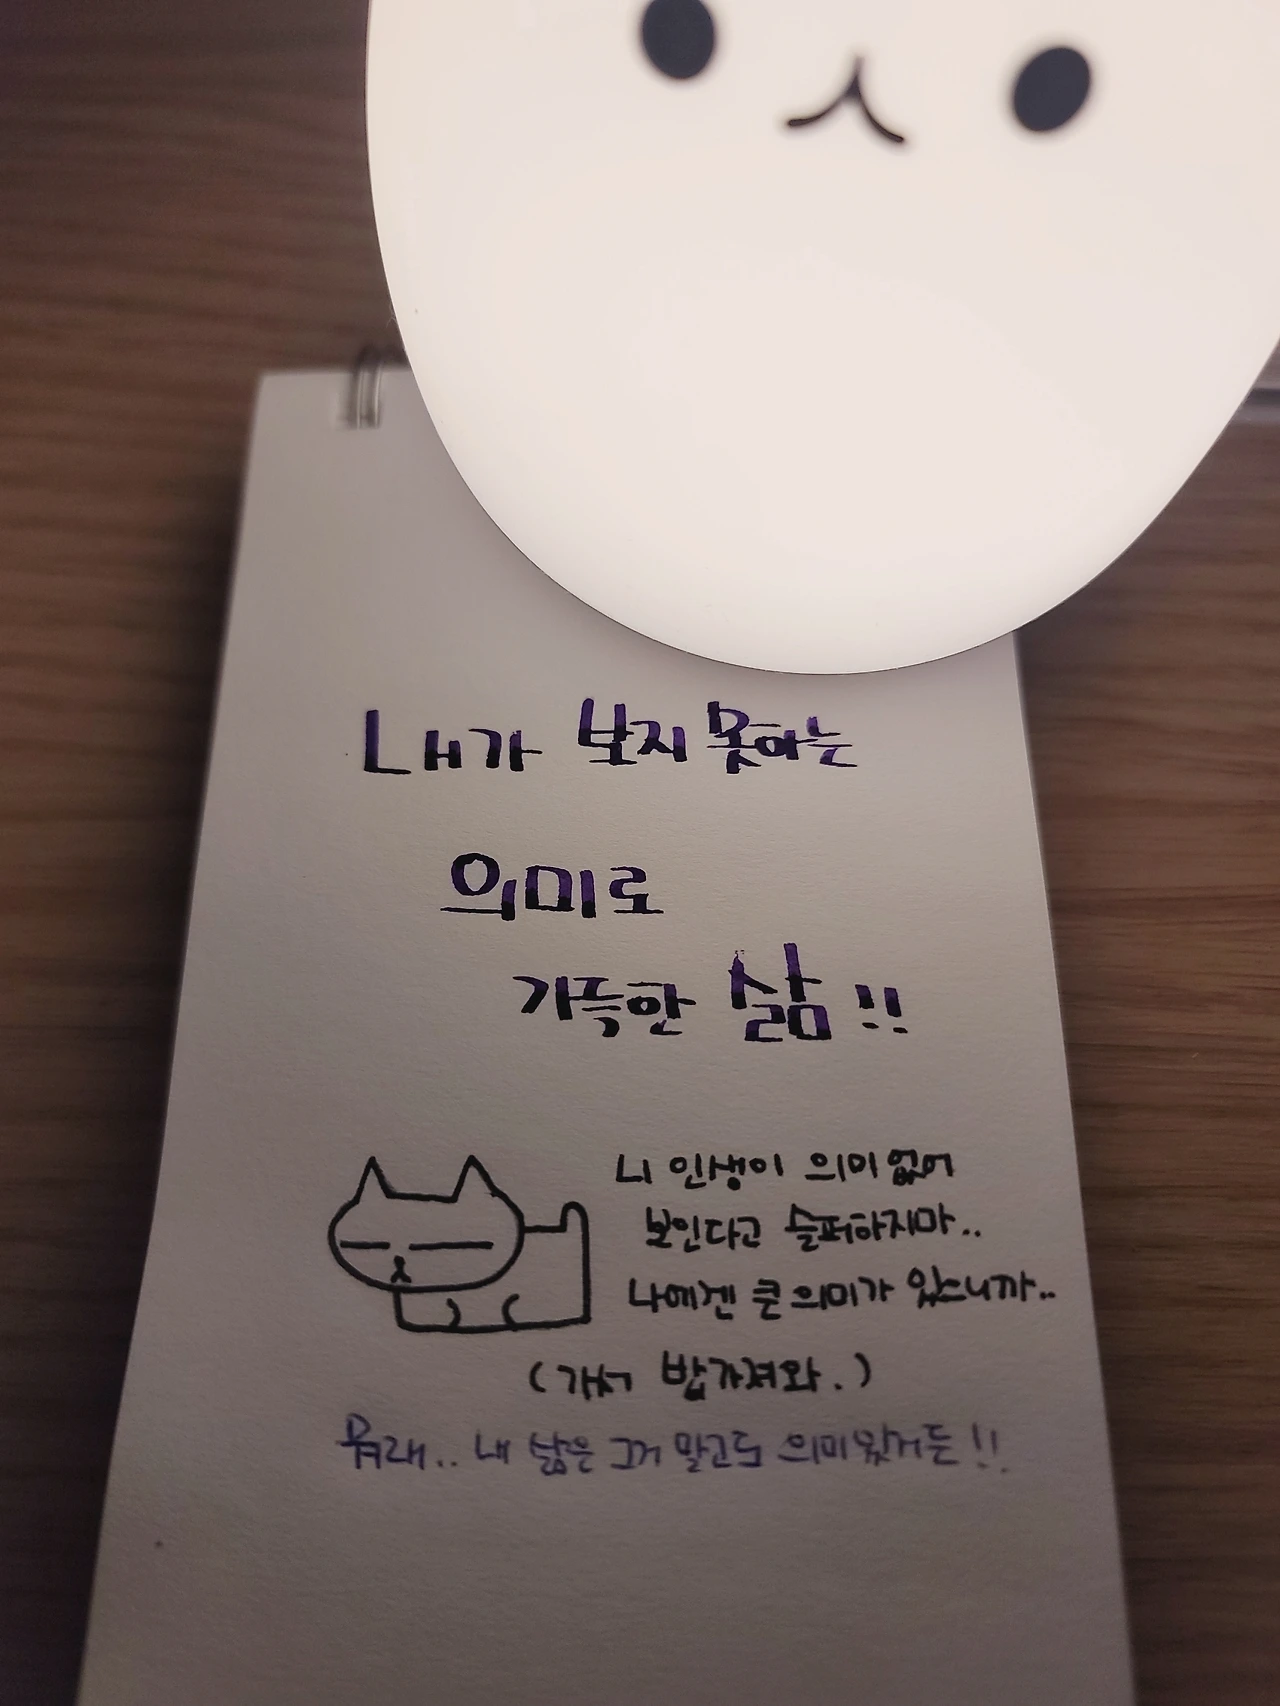 내가 보지 못하는
의미로
가득한 삶!!
니 인생이 의미 없어
보인다고 슬퍼하지마..
나에겐 큰 의미가 있으니까..
(가서 밥가져와.)
내 삶은 그거 말고도 의미있거든!!